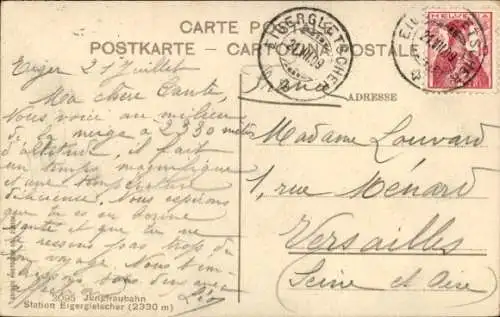 CARTE POSTALE
POSTKARTE - CARTOLINA POSTALE
EIGERGLETSCHER
21.VII.09
HELVETIA
Eiger 21 Juillet
France
ADRESSE
Ma chère Tante,
Nous voici au milieu
de la neige à 2330 mètres
d'altitude, il fait
un temps magnifique
et une température
délicieuse. Nous espérons
que tu es en bonne
santé et que tu ne
te ressens pas trop du
voyage. Nous t'em-
Léon
Madame Louvard
1, rue Ménard
Versailles
(Seine et Oise)
2095 Jungfraubahn
Station Eigergletscher (2330 m)